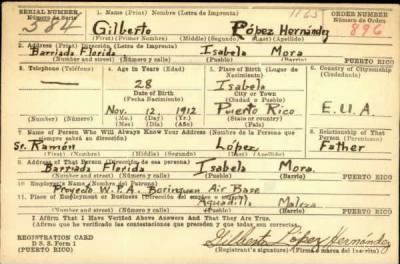 SERIAL NUMBER
Número de Serie
384
1. Name (Print) Nombre (Letra de Imprenta)
1165
ORDER NUMBER
Número de Orden
896
Gilberto López Hernández
(First) (Primer Nombre) (Middle) (Segundo Nombre) (Last) (Apellido)
2. Address (Print) Dirección (Letra de Imprenta)
Barriada Florida Isabela Mora PUERTO RICO
(Number and street) (Número y calle) (Pueblo) (Barrio)
3. Telephone (Teléfono)
4. Age in Years (Edad)
28
Date of Birth
(Fecha Nacimiento)
Nov. 12, 1912
(Mo.) (Day) (Yr.)
(Mes) (Día) (Año)
5. Place of Birth (Lugar de Nacimiento)
Isabela
City or Town
(Ciudad o Pueblo)
Puerto Rico
(State or country)
6. Country of Citizenship
(Ciudadanía)
E.U.A.
7. Name of Person Who Will Always Know Your Address (Nombre de la Persona que siempre sabrá su dirección)
Sr. Ramón López
(First) (Nombre) (Middle) (Last) (Apellido)
8. Relationship of That Person (Parentesco)
Father
9. Address of That Person (Dirección de esa persona)
Barriada Florida Isabela Mora. PUERTO RICO
(Number and street) (Número y calle) (Pueblo) (Barrio)
10. Employer's Name (Nombre del Patrono)
Proyecto W.P.A. Borinquen Air Base
11. Place of Employment or Business (Dirección del empleo o negocio)
Aguadilla Maleza PUERTO RICO
(Number and street) (Número y calle) (Pueblo) (Barrio)
I Affirm That I Have Verified Above Answers And That They Are True.
(Afirmo que he verificado las contestaciones que preceden y que todas son correctas).
REGISTRATION CARD
D. S. S. Form 1
(PUERTO RICO)
Gilberto López Hernández
(Registrant's signature) (Firma o marca del Inscrito)